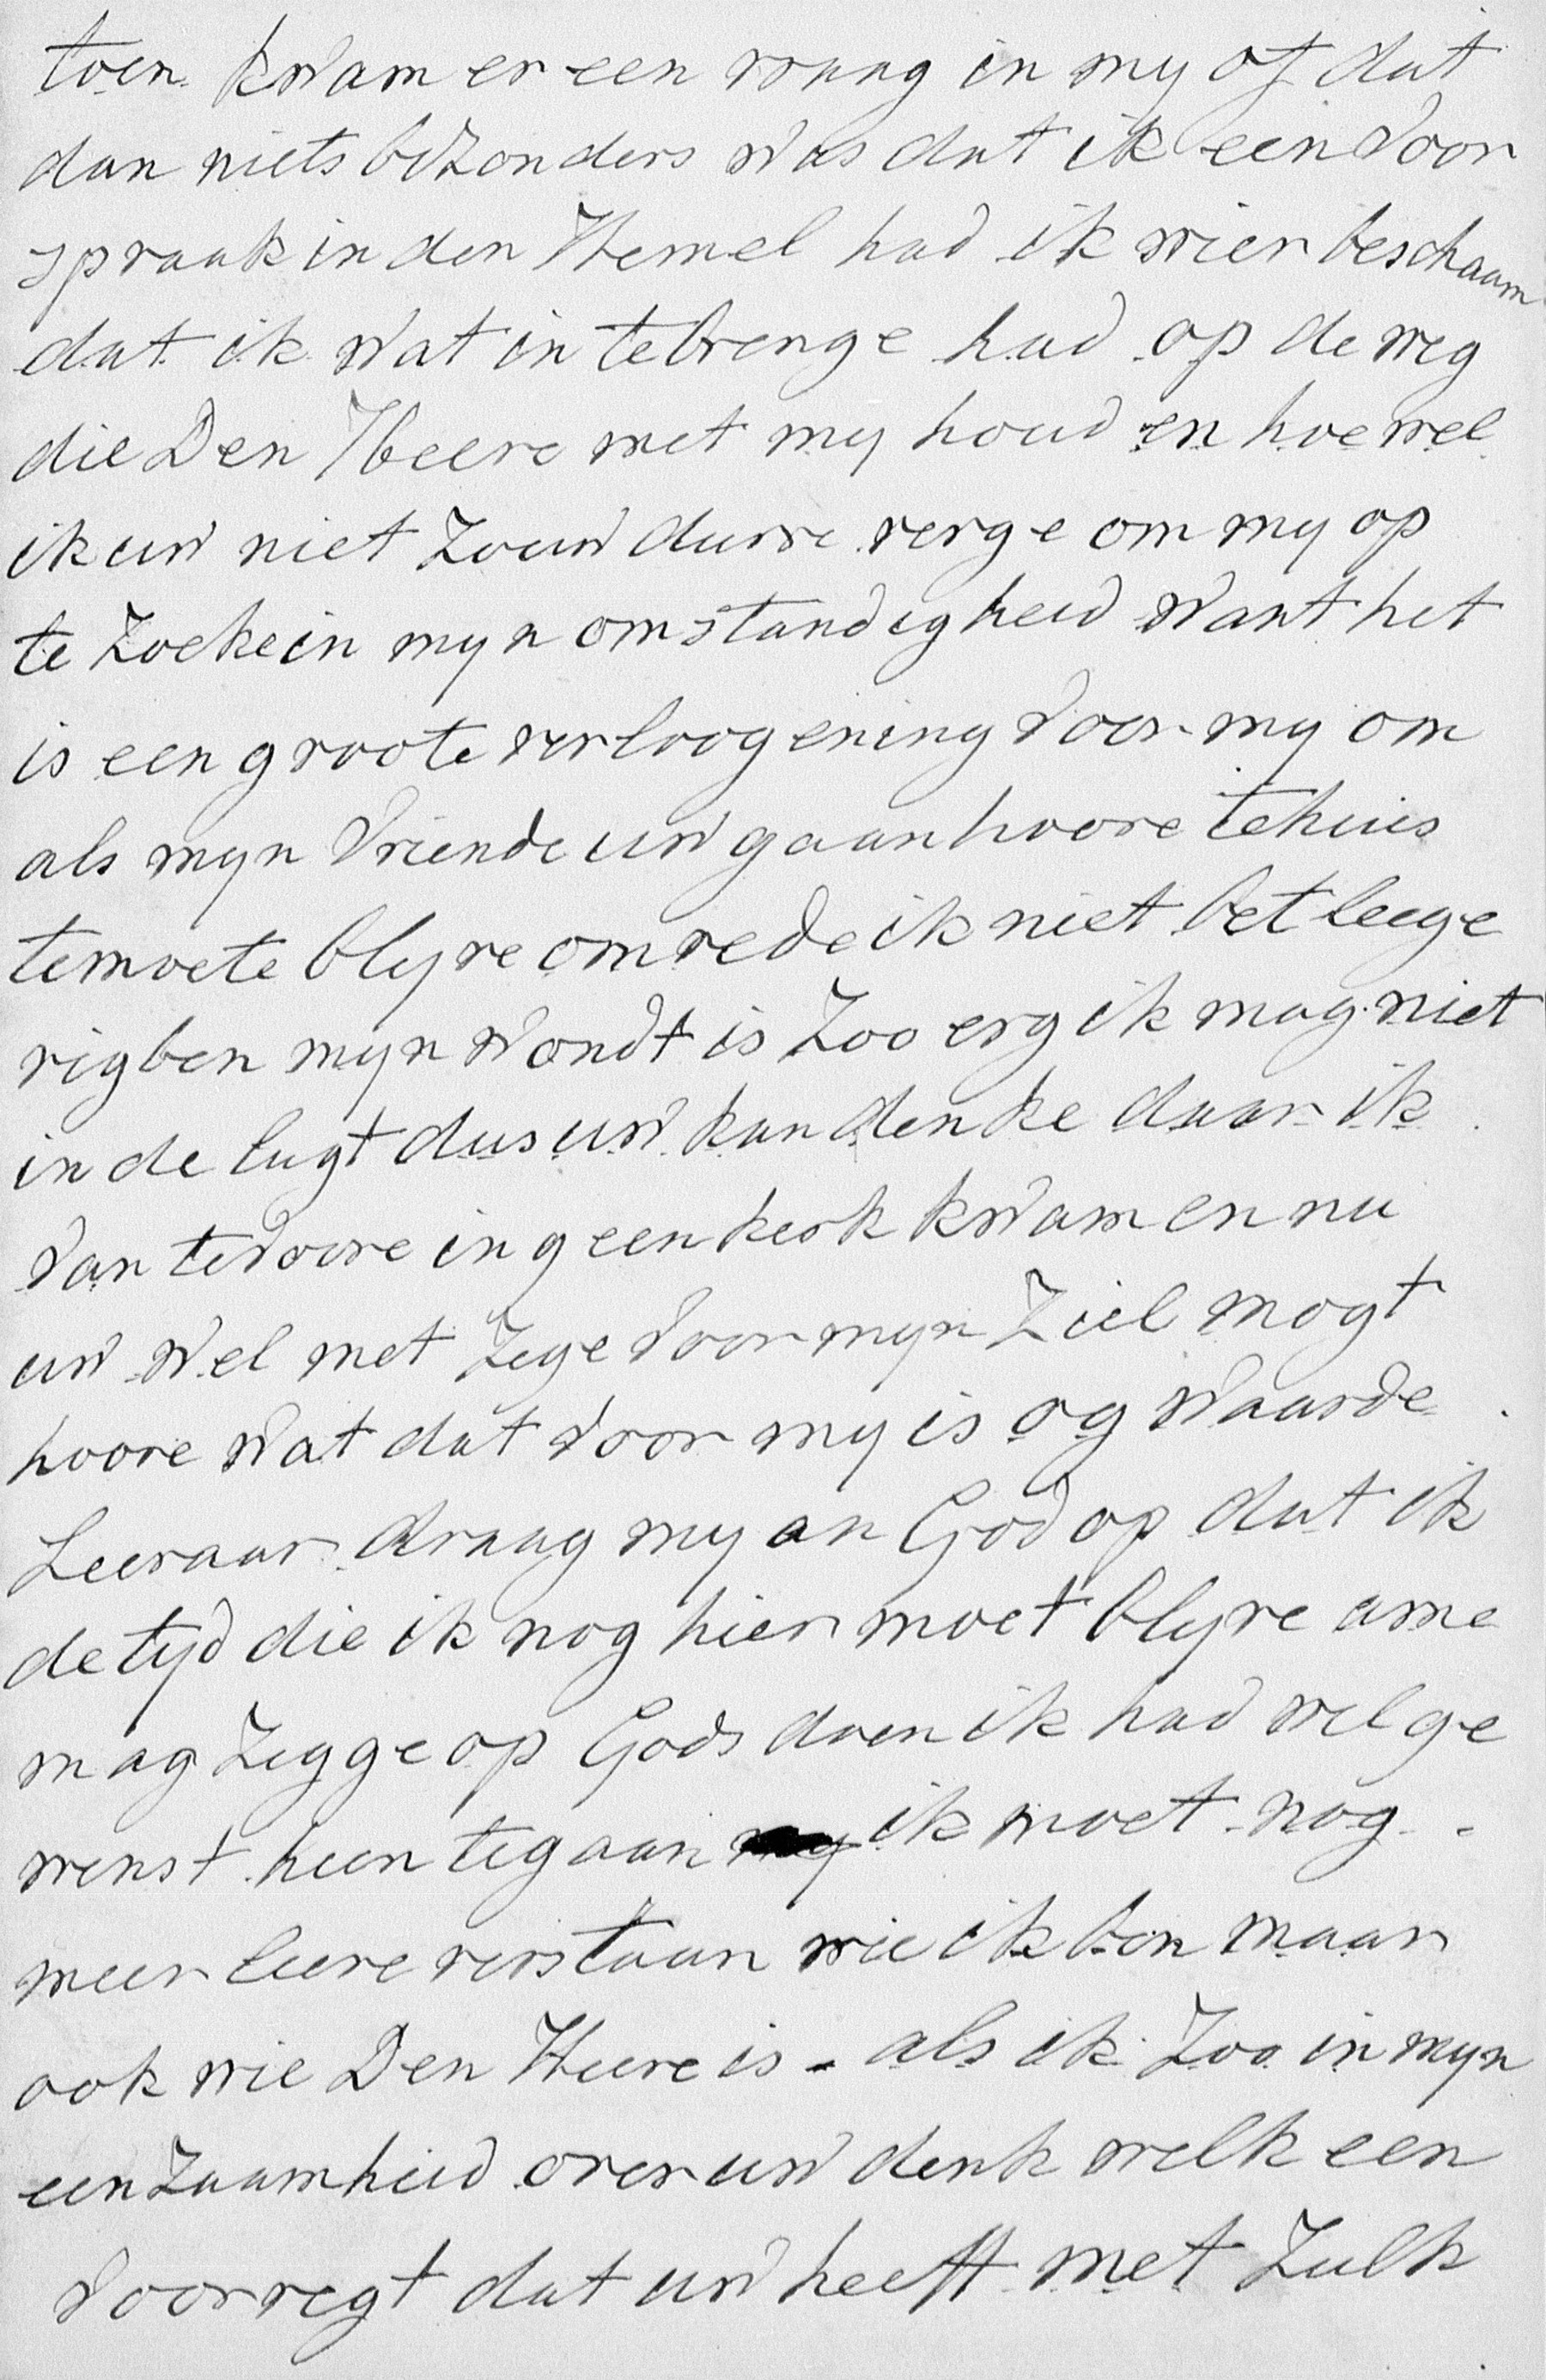 toen kwam er een vraag in my of dat
dan niets bezonders was dat ik een voor
spraak in den Hemel had ik wier beschaam
dat ik wat in te brenge had op de weg
die Den Heere met my houd en hoe wel
ik uw niet zouw durve verge om my op
te zoeke in myn omstandigheid want het
is een groote verloogening voor my om
als myn vriende uw gaan hoore te huis
te moete blyve omrede ik niet bet leege
rig ben myn wondt is zoo erg ik mag niet
in de lugt dus uw kan denke daar ik
van te voore in geen kerk kwam en nu
uw wel met zege voor myn Ziel mogt
hoore wat dat voor my is og waarde
Leeraar draag my an God op dat ik
de tyd die ik nog hier moet blyve ame
mag zegge op Gods doen ik had wel ge
wenst heen te gaan ik moet nog
meer leere verstaan wie ik ben maar
ook wie Den Heere is - als ik zoo in myn
eenzaamheid over uw denk welk een
voorregt dat uw heeft met zulk